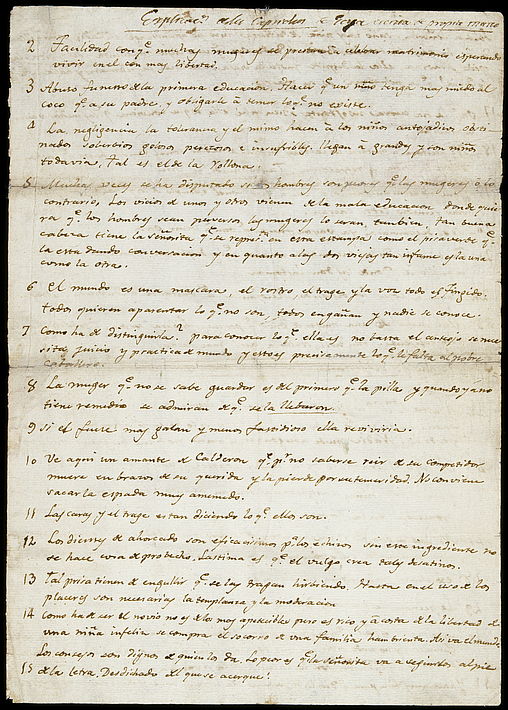 Explicacn de los Caprichos de Goya escrita de propia mano
2 Facilidad con q.e muchas mugeres se prestan a celebrar matrimonio esperando
vivir en el con mas libertad.
3 Abuso funesto de la primera educacion. Hacer q.e un niño tenga mas miedo al
coco q.e a su padre, y obligarle a temer lo q.e no existe.
4 La negligencia la tolerancia y el mimo hacen a los niños antojadizos obsti-
nados soberbios golosos perezosos e insufribles. llegan a grandes y son niños
todavia. Tal es el de la Rollona.
5 Muchas veces se ha disputado si los hombres son peores q.e las mugeres o lo
contrario. Los vicios de unos y otros vienen de la mala educacion donde quie-
ra q.e los hombres sean perversos las mugeres lo seran tambien. Tan buena
cabeza tiene la señorita q.e se repres.n en esta estampa como el pisaverde q.e
la esta dando conversacion y en quanto a las dos viejas tan infame es la una
como la otra.
6 El mundo es una mascara, el rostro el trage y la voz todo es fingido.
Todos quieren aparentar lo q.e no son, todos engañan y nadie se conoce.
7 Como ha de distinguirla? para conocer lo q.e ella es no basta el anteojo se nece-
sita juicio y practica de mundo y esto es precisamente lo q.e le falta al pobre
caballero.
8 La muger q.e no se sabe guardar es del primero q.e la pilla y quando ya no
tiene remedio se admiran de q.e se la llebaron.
9 si el fuese mas galan y menos fastidioso ella reviviria.
10 Ve aqui un amante de Calderon q.e p.r no saberse reir de su competidor
muere en brazos de su querida y la pierde por su temeridad. No conviene
sacar la espada muy amenudo.
11 Las caras y el trage estan diciendo lo q.e ellos son.
12 Los dientes de ahorcado son eficacisimos p.a los echizos sin este ingrediente no
se hace cosa de probecho. Lastima es q.e el vulgo crea tales desatinos.
13 Tal prisa tienen de engullir q.e se las tragan hirbiendo. Hasta en el uso de los
placeres son necesarias la templanza y la moderacion
14 Como ha de ser el novio no es de los mas apecibles pero es rico y a costa de la libertad de
una niña infeliz se compra el socorro de una familia hambrienta. Asi va el mundo.
15 Los consejos son dignos de quien los da. Lo peor es q.e la señorita va a seguirlos al pie
de la letra. Desdichado del que se acerque!